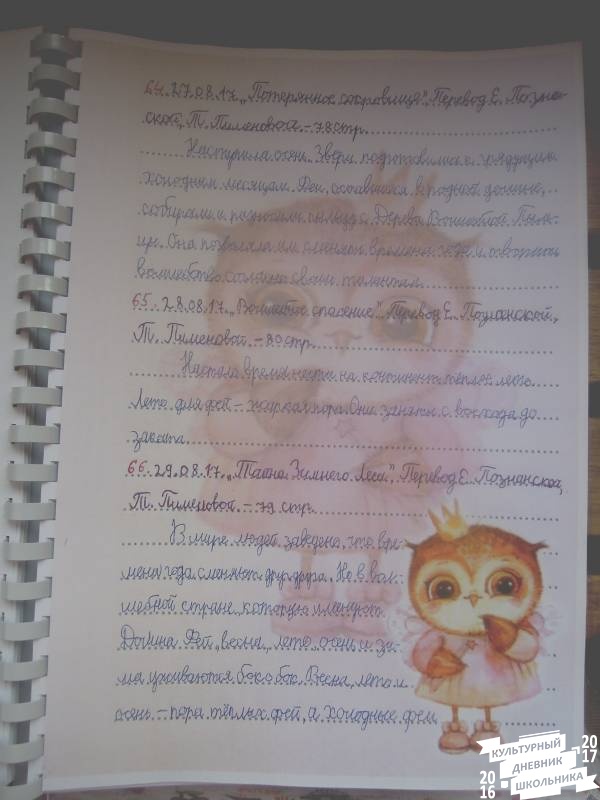 64. 27.08.17. „Потерянное сокровище". Перевод Е. Позна-
ской, Т. Пименовой. – 78 стр.
Наступила осень. Звери подготовились к грядущим
холодным месяцам. Феи, оставшиеся в родной долине,
собирали и разносили пыльцу с Дерева Волшебной Пыль-
цы. Она позволяла им
волшебство своими талантами.
65. 28.08.17. „Волшебное спасение". Перевод Е. Познанской,
Т. Пименовой. – 80 стр.
Настало время нести на континент тёплое лето.
Лето для фей – жаркая пора. Они заняты с восхода до
заката.
66. 29.08.17. „Тайна Зимнего Леса". Перевод Е. Познанской,
Т. Пименовой. – 79 стр.
В мире людей заведено, что вре-
мена года сменяют друг друга. Но в вол-
шебной стране, которую именуют
Долина Фей, весна, лето, осень и зи-
ма уживаются бок о бок. Весна, лето и
осень – пора тёплых фей, а холодные феи
КУЛЬТУРНЫЙ
ДНЕВНИК
ШКОЛЬНИКА
2016
2017